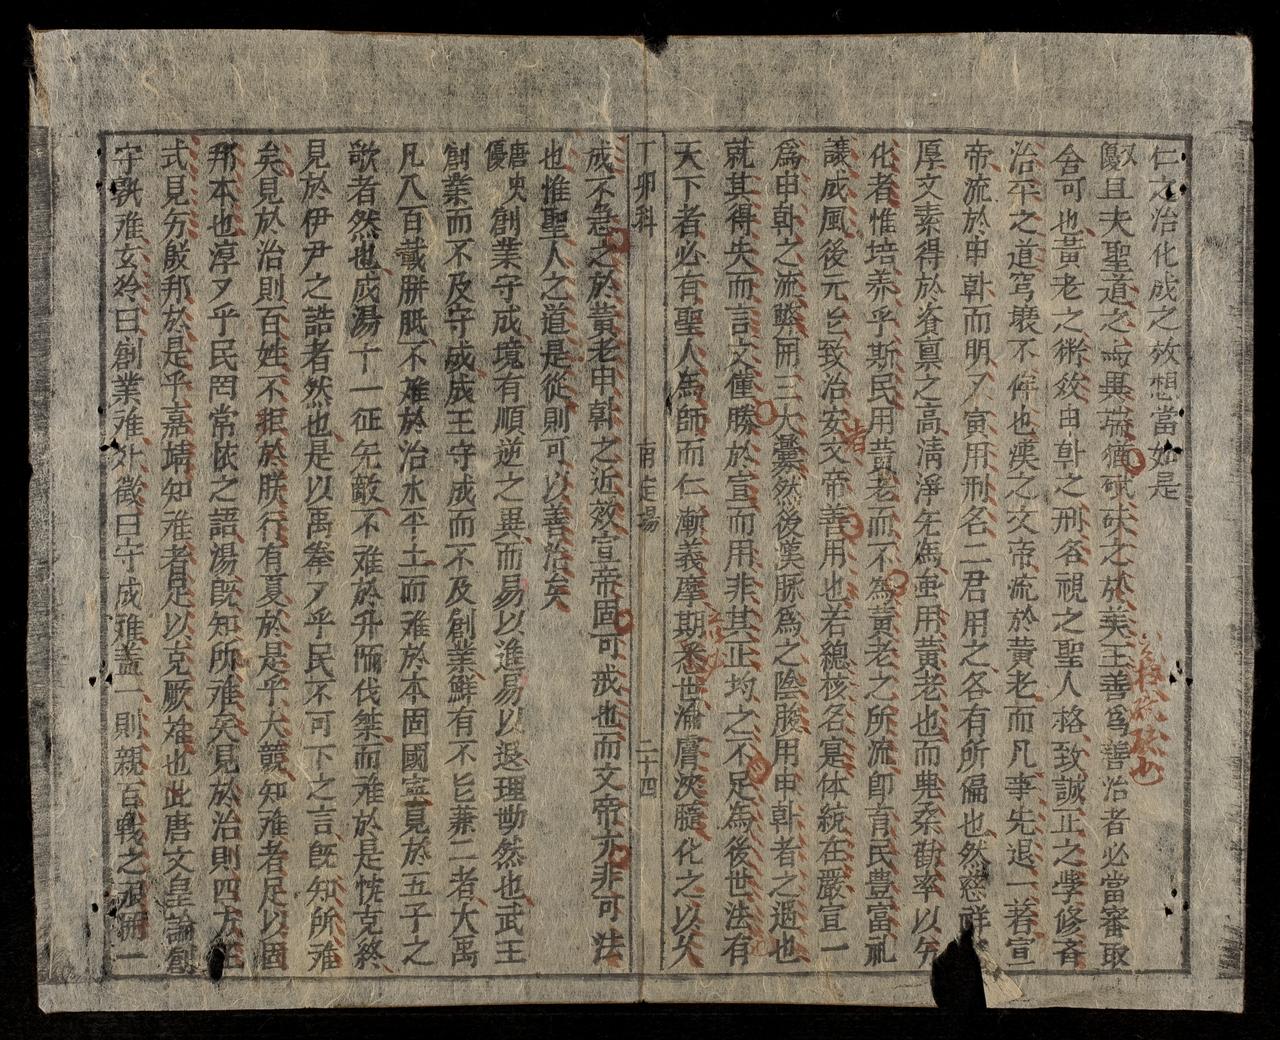 仁之治化成之效想當如是
優且夫聖道之與異瑞猶珷砆之於美王善爲善治者必當審取
舍可也黃老之術效申韩之刑名視之聖人格致誠正之學修斉
治平之道穹壤不侔也漢之文帝流於黃老而凡事先退一著宣
帝流於申韩而明又寅用刑名二君用之各有所偏也然慈祥
厚文素得於資稟之高清淨先爲虽用黃老也而典桑勸率以先
化者惟培养乎斯民用虽老而不爲黃老之所流卽有民豊富礼
讓成風後元㠯致治安文帝善用也若總核名寔体統在嚴宣一
爲申韩之流弊而三大釁然後漢脉爲之陰朘用申韩者之過也
就其得失而言文僅勝於宣而用非其正均之不足爲後世法有
天下者必有聖人爲師而仁漸義摩期悉世淪膚浹髓化之以久
丁卯科
南定場
二十四
成不急之於黃老申韩之近效宣帝固可戒也而文帝亦非可法
也惟聖人之道是從則可以善治矣
唐史創業守成境有順逆之異而易以進易以退理勢然也武王
優
創業而不及守成成王守成而不及創業鮮有不㠯兼二者大禹
凡八百載胼胝不难於治水平土而难於本固國寧見於五子之
歌者然也成湯十一征无敵不难於升陑伐桀而难於是忱克終
見於伊尹之誥者然也是以禹拳又乎民不可下之言旣知所难
矣見於治則百姓不拒於朕行有夏於是乎大競知难者足以固
邦本也淳又乎民罔常依之語湯旣知所难矣見於治則四方正
式見方殷邦於是乎嘉靖知难者足以克厥难也此唐文皇論創
守孰难玄齡曰創業难外徵曰守成难盖一則親百戰之艰而一